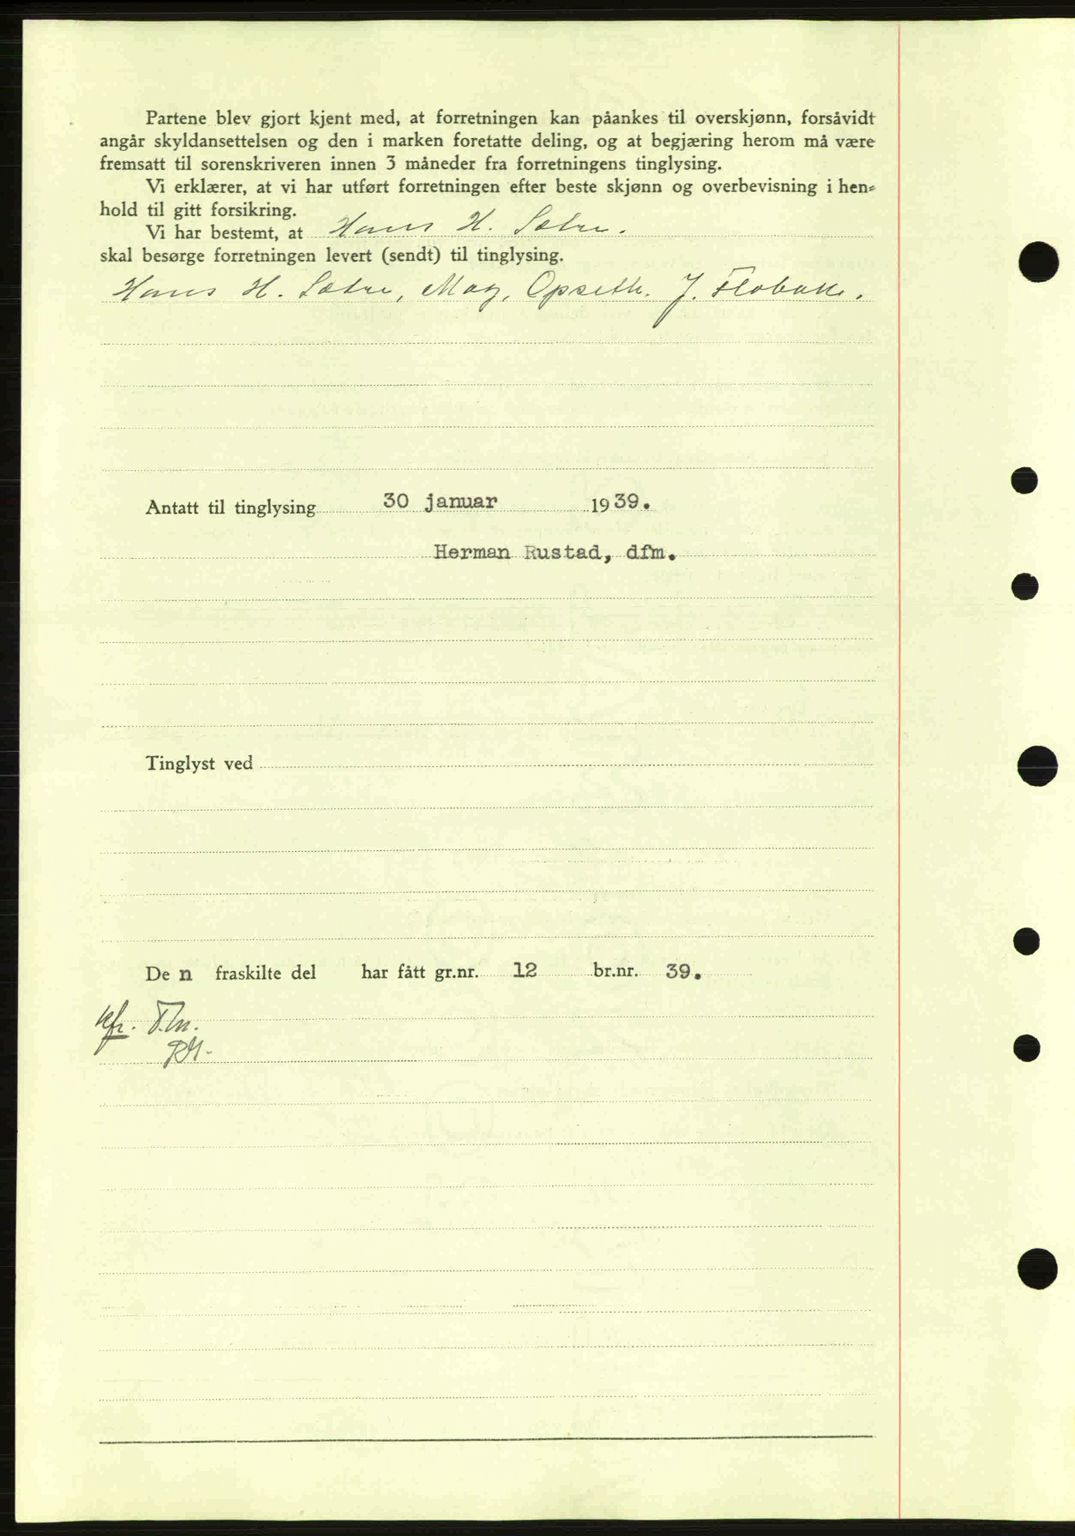 Partene blev gjort kjent med, at forretningen kan påankes til overskjønn, forsåvidt
angår skyldansettelsen og den i marken foretatte deling, og at begjæring herom må være
fremsatt til sorenskriveren innen 3 måneder fra forretningens tinglysing.
Vi erklærer, at vi har utført forretningen efter beste skjønn og overbevisning i hen-
hold til gitt forsikring.
Vi har bestemt, at Hans H. Sætre.
skal besørge forretningen levert (sendt) til tinglysing.
Hans H. Sætre, Mag. Opseth. J.
Antatt til tinglysing 30 januar 1939.
Herman Rustad, dfm.
Tinglyst ved
De n fraskilte del har fått gr.nr. 12 br.nr. 39.